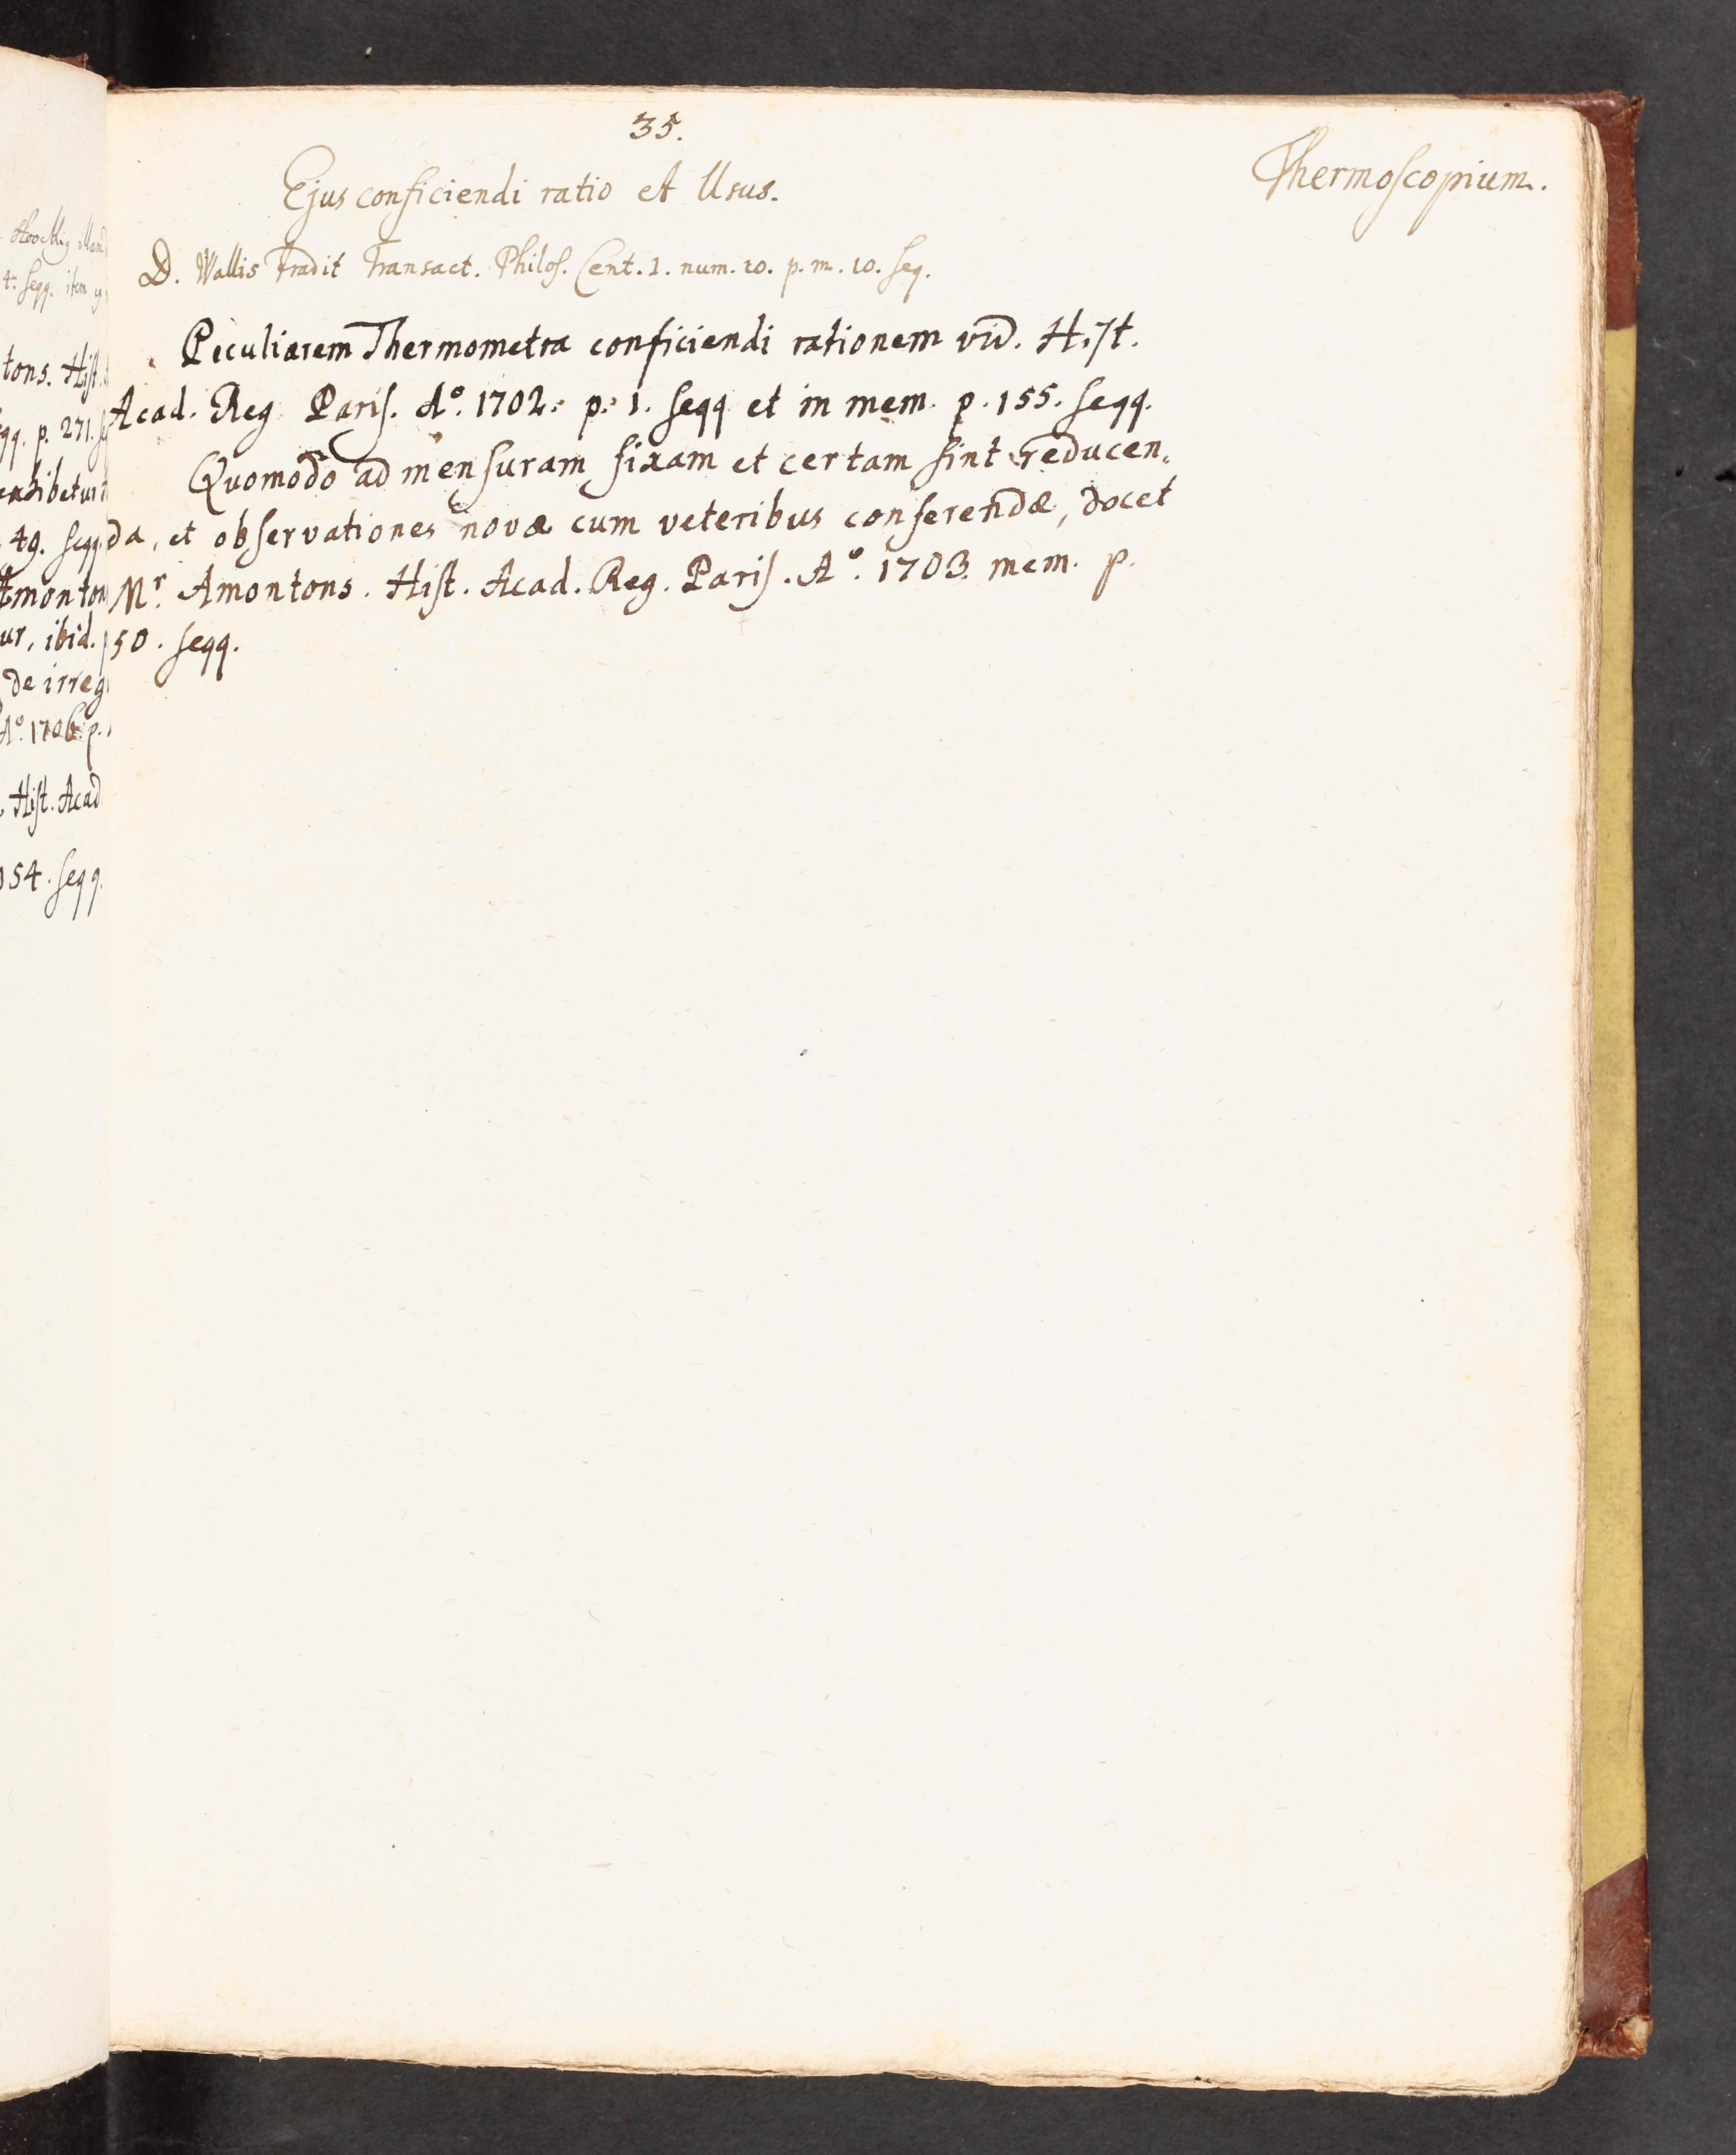 35.
Thermoscopium.
Ejus conficiendi ratio et Usus.
D. Wallis tradit Transact. Philos. Cent. 1. num. 10. p. m. 10. seq.
Peculiarem Thermometra conficiendi rationem vid. Hist.
Acad. Reg. Paris. A°. 1702. p. 1. seqq et in mem. p. 155. seqq.
Quomodo ad mensuram fixam et certam sint reducen-
da, et observationes novæ cum veteribus conferendæ, docet
Mr. Amontons. Hist. Acad. Reg. Paris. A°. 1703. mem. p.
50. seqq.
4. seqq. item
tons. Hist.
qq. p. 271.
49. seqq.
Amonton
ur, ibid.
de irreg
A°. 1706. p.
Hist. Acad
54. seqq.